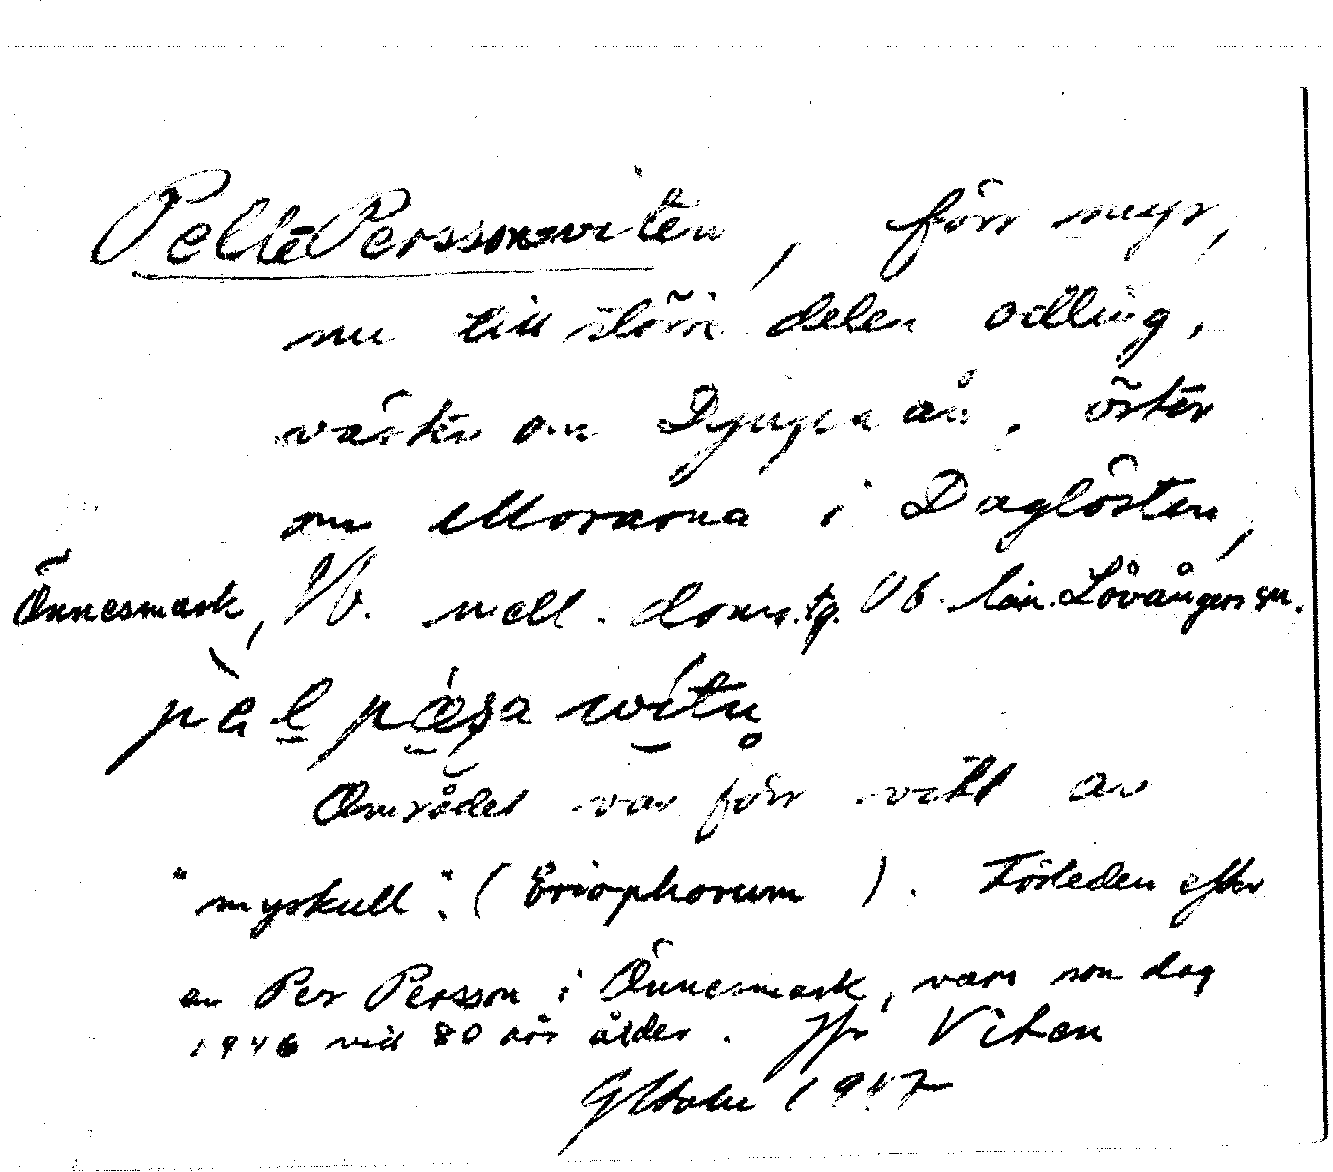 Pelle Perssonviten, förr myr,
nu till större delen odling,
väster om Djupa ån, öster
om Morarna i Daglösten,
Önnesmark, Vb. mell. doms.tg. Vb. län. Lövångers sn.
pèl pæșa wítṇ
Området var förr vitt av
"myskull". (Eriophorum). Förleden efter
en Per Persson i Önnesmark, vars son dog
1946 vid 80 års ålder. Jfr Viten
1947